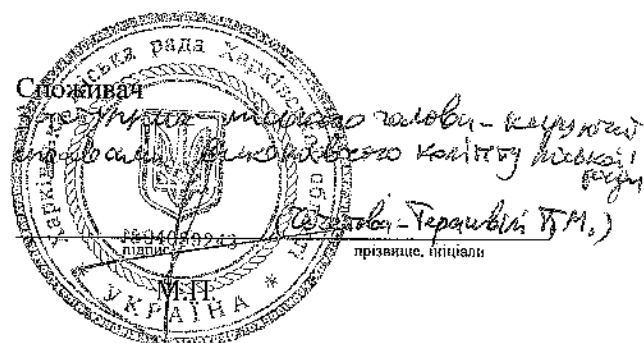 Споживач
Заступник міського голови - керуючий
справами виконавчого комітету міської
ради
(Чечетова-Терашвілі Т.М.)
підпис
прізвище, ініціали
М.П.
Харківська міська рада Харківської області
* УКРАЇНА *
№04059243